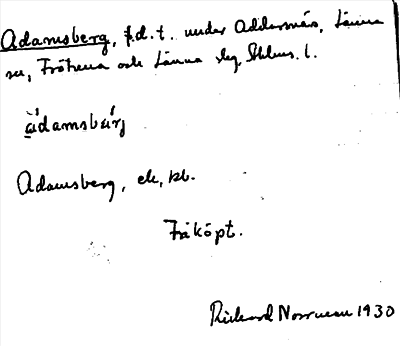 Adamsberg, f.d.t. under Addersnäs, Länna
sn, Frötuna och Länna slg, Sthlms l.
àdamsbær̀j
Adamsberg, ek, kb.
Friköpt.
Rickard Norrman 1930